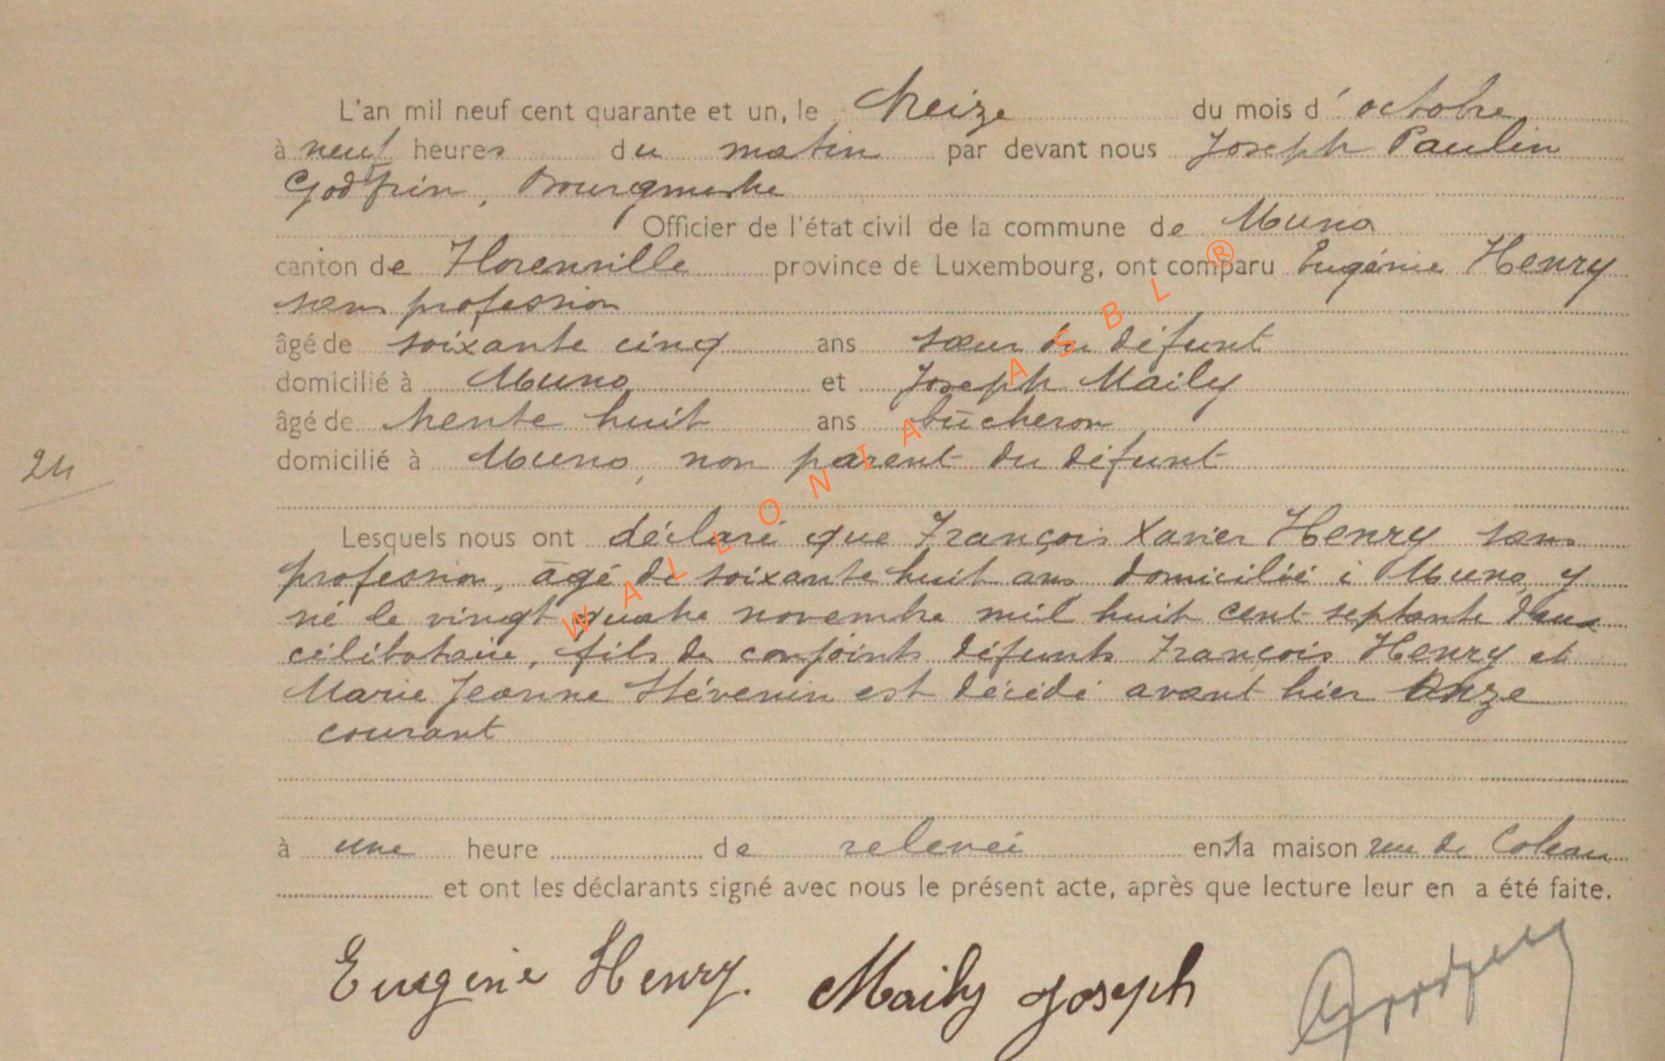 L'an mil neuf cent quarante et un, le treize du mois d' octobre
à neuf heures du matin par devant nous Joseph Paulin
Godfrin, Bourgmestre
Officier de l'état civil de la commune de Muno
canton de Florenville province de Luxembourg, ont comparu Eugénie Henry
sans profession
âgé de soixante cinq ans sœur du défunt
domicilié à Muno et Joseph Maily
âgé de trente huit ans bûcheron
domicilié à Muno, non parent du défunt
24
Lesquels nous ont déclaré que François Xavier Henry sans
profession, âgé de soixante huit ans domicilié à Muno, y
né le vingt quatre novembre mil huit cent septante deux
célibataire, fils de conjoints défunts François Henry et
Marie Jeanne Stévenin est décédé avant hier onze
courant
à une heure de relevée en la maison rue de
et ont les déclarants signé avec nous le présent acte, après que lecture leur en a été faite.
Eugénie Henry. Maily Joseph
WALLONIA ASBL ®